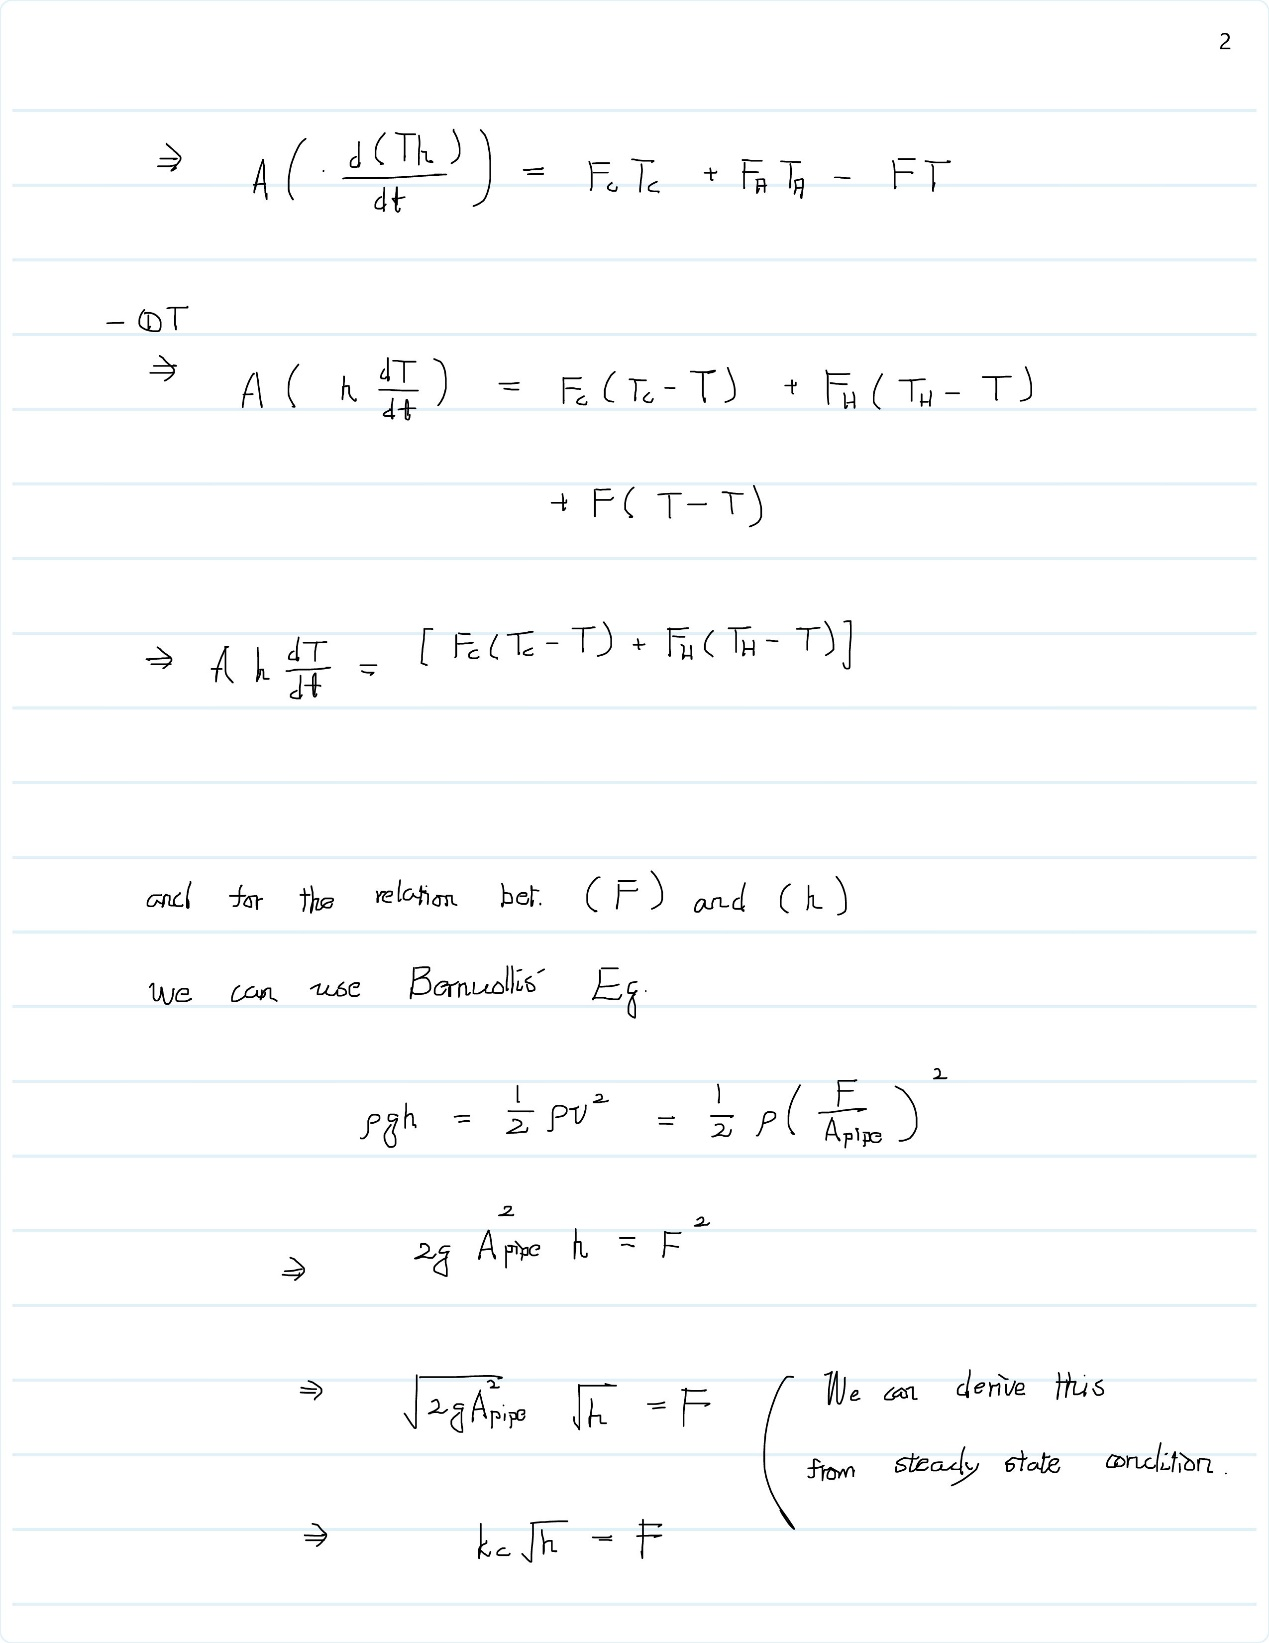 2
⇒ A ( · d(Th)/dt ) = F_c T_c + F_H T_H - FT
- ①T
⇒ A ( h dT/dt ) = F_c ( T_c - T ) + F_H ( T_H - T )
+ F ( T - T )
⇒ A h dT/dt = [ F_c ( T_c - T ) + F_H ( T_H - T ) ]
and for the relation bet. (F) and (h)
we can use Bernuollis' Eq.
ρgh = 1/2 ρv² = 1/2 ρ ( F / A_pipe )²
⇒ 2g A_pipe² h = F²
⇒ √(2g A_pipe²) √h = F ( We can derive this
from steady state condition.
⇒ k_c √h = F